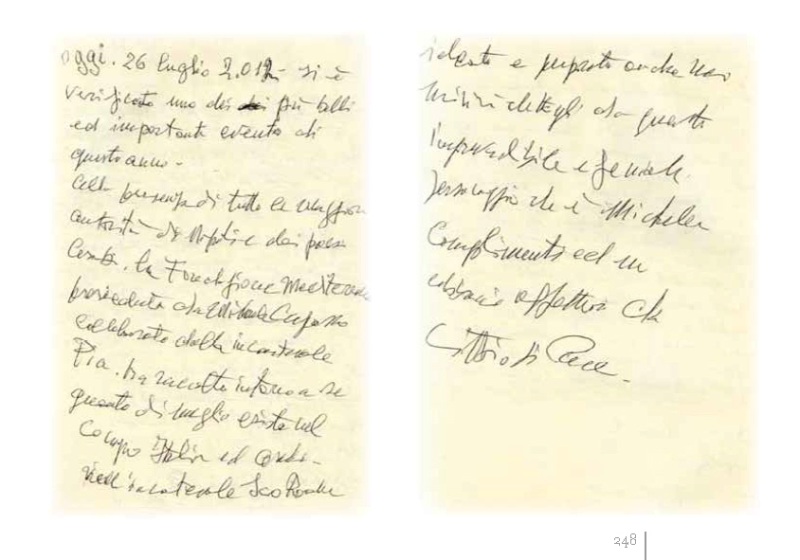 oggi. 26 luglio 2.012 si è
verificato uno dei più belli
ed importanti evento di
questo anno -
alla presenza di tutte le maggiori
autorità di Napoli e dei paesi
la Fondazione Mediterranea
presieduta da Michele Capasso
collaborato dalla incantevole
Pia. ha raccolto intorno a se
quanto di meglio esiste nel
Campo Italia ed
nell'incantevole
ideato e anche nei
minimi dettagli da questo
imprevedibile e geniale
personaggio che è Michele
Complimenti ed un
abbraccio affettuoso da
Vittorio di Pace.
248